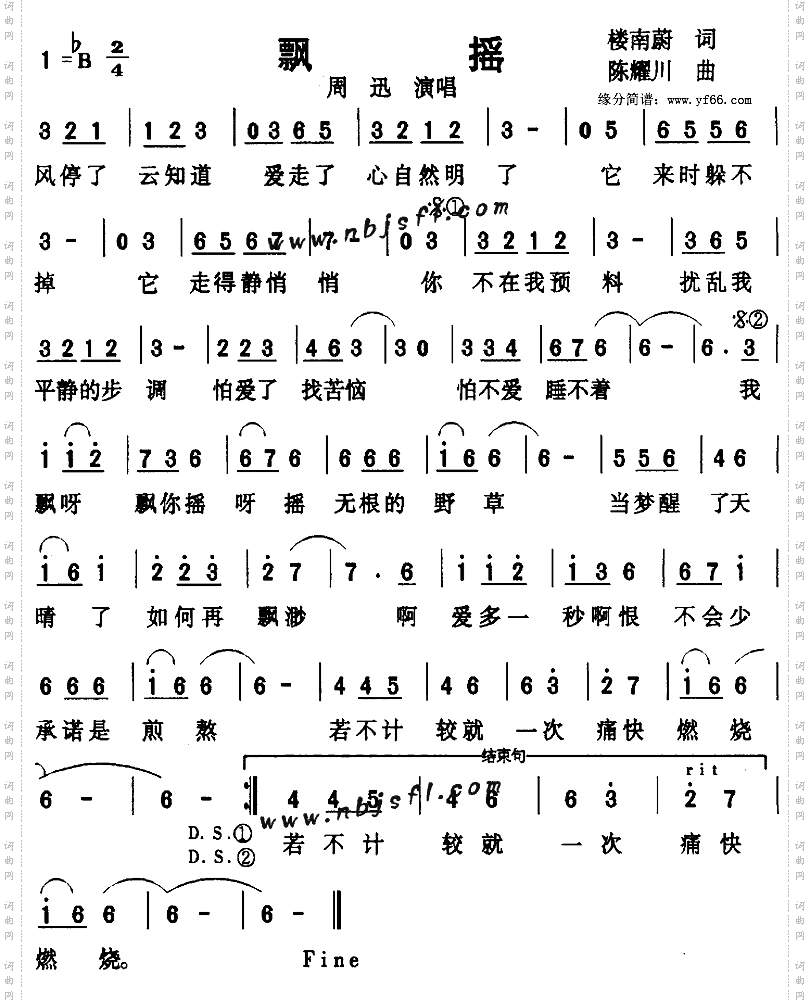 1=♭B 2/4 飘 摇 楼南蔚 词
陈耀川 曲
周 迅 演唱
缘分简谱：www.yf66.com
3 2 1 | 1 2 3 | 0 3 6 5 | 3 2 1 2 | 3 - | 0 5 | 6 5 5 6 |
风停了 云知道 爱走了 心自然明 了 它 来时躲不
𝄋①
3 - | 0 3 | 6 5 6 7 | 7 - | 0 3 | 3 2 1 2 | 3 - | 3 6 5 |
www.nbjsfl.com
掉 它 走得静悄 悄 你 不在我预 料 扰乱我
𝄋②
3 2 1 2 | 3 - | 2 2 3 | 4 6 3 | 3 0 | 3 3 4 | 6 7 6 | 6 - | 6 . 3 |
平静的步 调 怕爱了 找苦恼 怕不爱 睡不着 我
i i 2̇ | 7 3 6 | 6 7 6 | 6 6 6 | i 6 6 | 6 - | 5 5 6 | 4 6 |
飘呀 飘你摇 呀摇 无根的 野草 当梦醒 了天
i 6 i | 2̇ 2̇ 3̇ | 2̇ 7 | 7 . 6 | i i 2̇ | i 3 6 | 6 7 i |
晴了 如何再 飘渺 啊 爱多一 秒啊恨 不会少
6 6 6 | i 6 6 | 6 - | 4 4 5 | 4 6 | 6 3̇ | 2̇ 7 | i 6 6 |
承诺是 煎熬 若不计 较就 一次 痛快 燃烧
结束句
rit
6 - | 6 - :| 4 4 5 | 4 6 | 6 3̇ | 2̇ 7 |
www.nbjsfl.com
D.S.① 若不计 较就 一次 痛快
D.S.②
i 6 6 | 6 - | 6 - | 6 - ‖
燃 烧。 Fine
词曲网
词曲网
词曲网
词曲网
词曲网
词曲网
词曲网
词曲网
词曲网